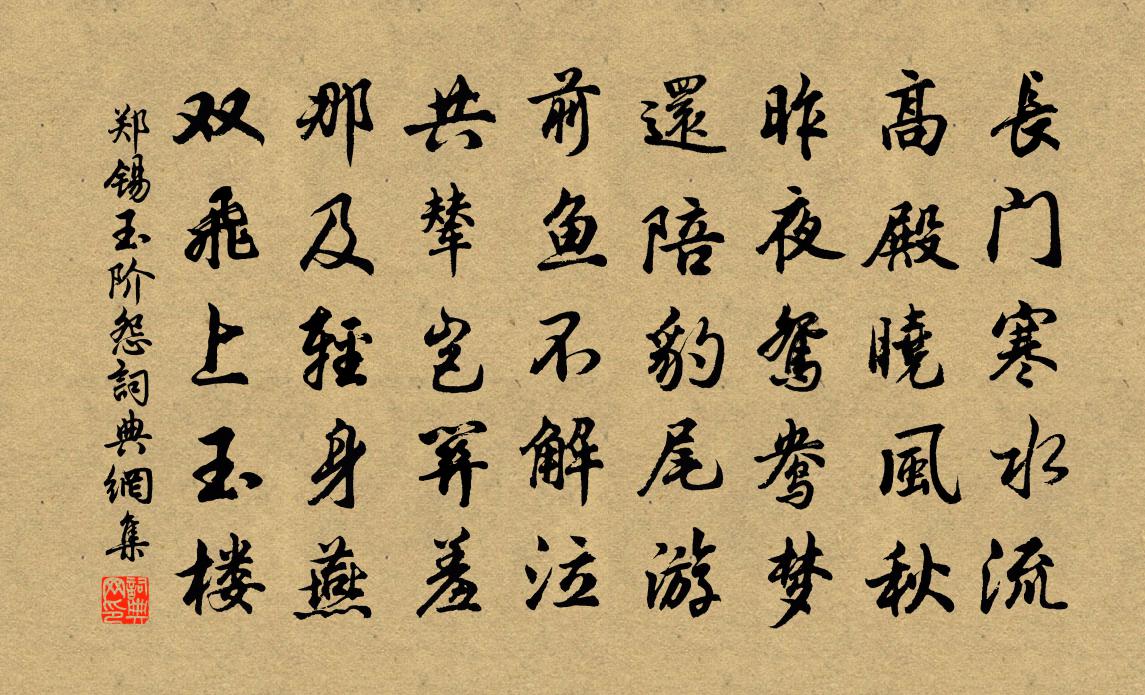 長门寒水流
高殿曉風秋
昨夜鴛鸯梦
還陪豹尾游
前鱼不解泣
共輦岂算羞
那及輕身燕
双飛上玉楼
郑锡玉阶怨詞典網集
詞典网印